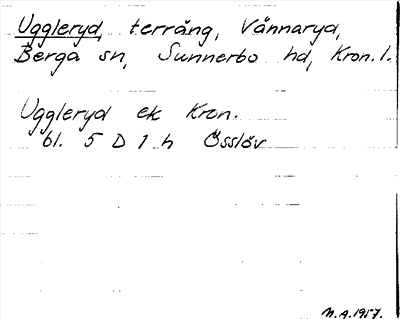 Uggleryd, terräng, Vännaryd,
Berga sn, Sunnerbo hd, Kron. l.
Uggleryd ek Kron.
bl. 5 D 1 h Össlöv
N.A. 1957.